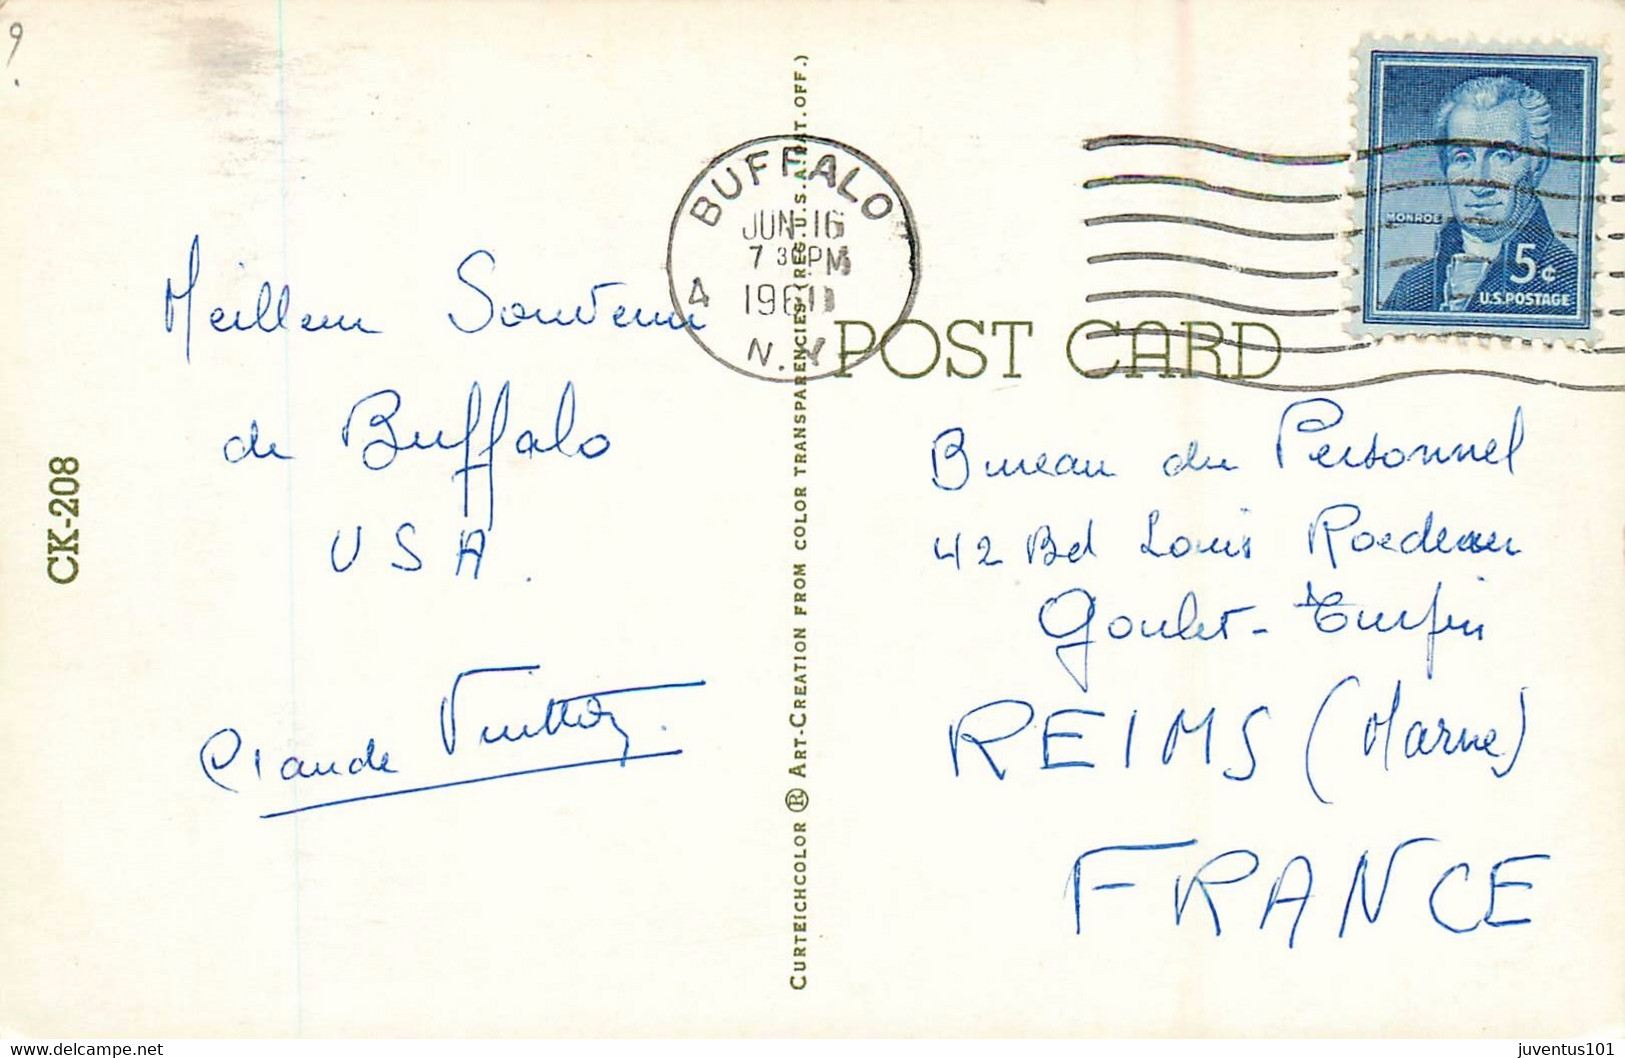 ?
Meilleur Souvenir
de Buffalo
USA.
Claude
CK-208
CURTEICHCOLOR ® ART-CREATION FROM COLOR TRANSPARENCIES (REG. U.S.A. PAT. OFF.)
BUFFALO
JUN 16
7 30 PM
4
N.Y
POST CARD
MONROE
5¢
U.S. POSTAGE
Bureau du Personnel
42 Bd Louis Roederer
Goulet-Turpin
REIMS (Marne)
FRANCE
juventus101